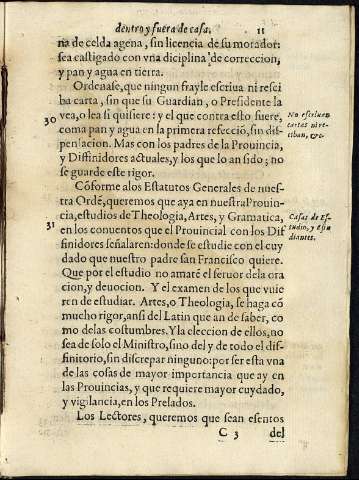 dentro y fuera de casa. 11
na de celda agena, sin licencia de su morador:
sea castigado con vna diciplina de correccion,
y pan y agua en tierra.
Ordenase, que ningun frayle escriua ni resci
ba carta, sin que su Guardian, o Presidente la
30 vea, o lea si quisiere: y el que contra esto fuere,
No escriuan
cartas ni re-
ciban, &c.
coma pan y agua en la primera refecciõ, sin dis-
pensacion. Mas con los padres de la Prouincia,
y Diffinidores actuales, y los que lo an sido; no
se guarde este rigor.
Cõforme a los Estatutos Generales de nues-
tra Ordẽ, queremos que aya en nuestra Prouin-
31 cia, estudios de Theologia, Artes, y Gramatica,
Casas de Es-
tudio, y Estu
diantes.
en los conuentos que el Prouincial con los Dif
finidores señalaren: donde se estudie con el cuy
dado que nuestro padre san Francisco quiere.
Que por el estudio no amatẽ el feruor de la ora
cion, y deuocion. Y el examen de los que vuie
ren de estudiar. Artes, o Theologia, se haga cõ
mucho rigor, ansi del Latin que an de saber, co
mo delas costumbres. Y la eleccion de ellos, no
sea de solo el Ministro, sino del y de todo el dif-
finitorio, sin discrepar ninguno: por ser esta vna
de las cosas de mayor importancia que ay en
las Prouincias, y que requiere mayor cuydado,
y vigilancia, en los Prelados.
Los Lectores, queremos que sean esentos
C 3 del